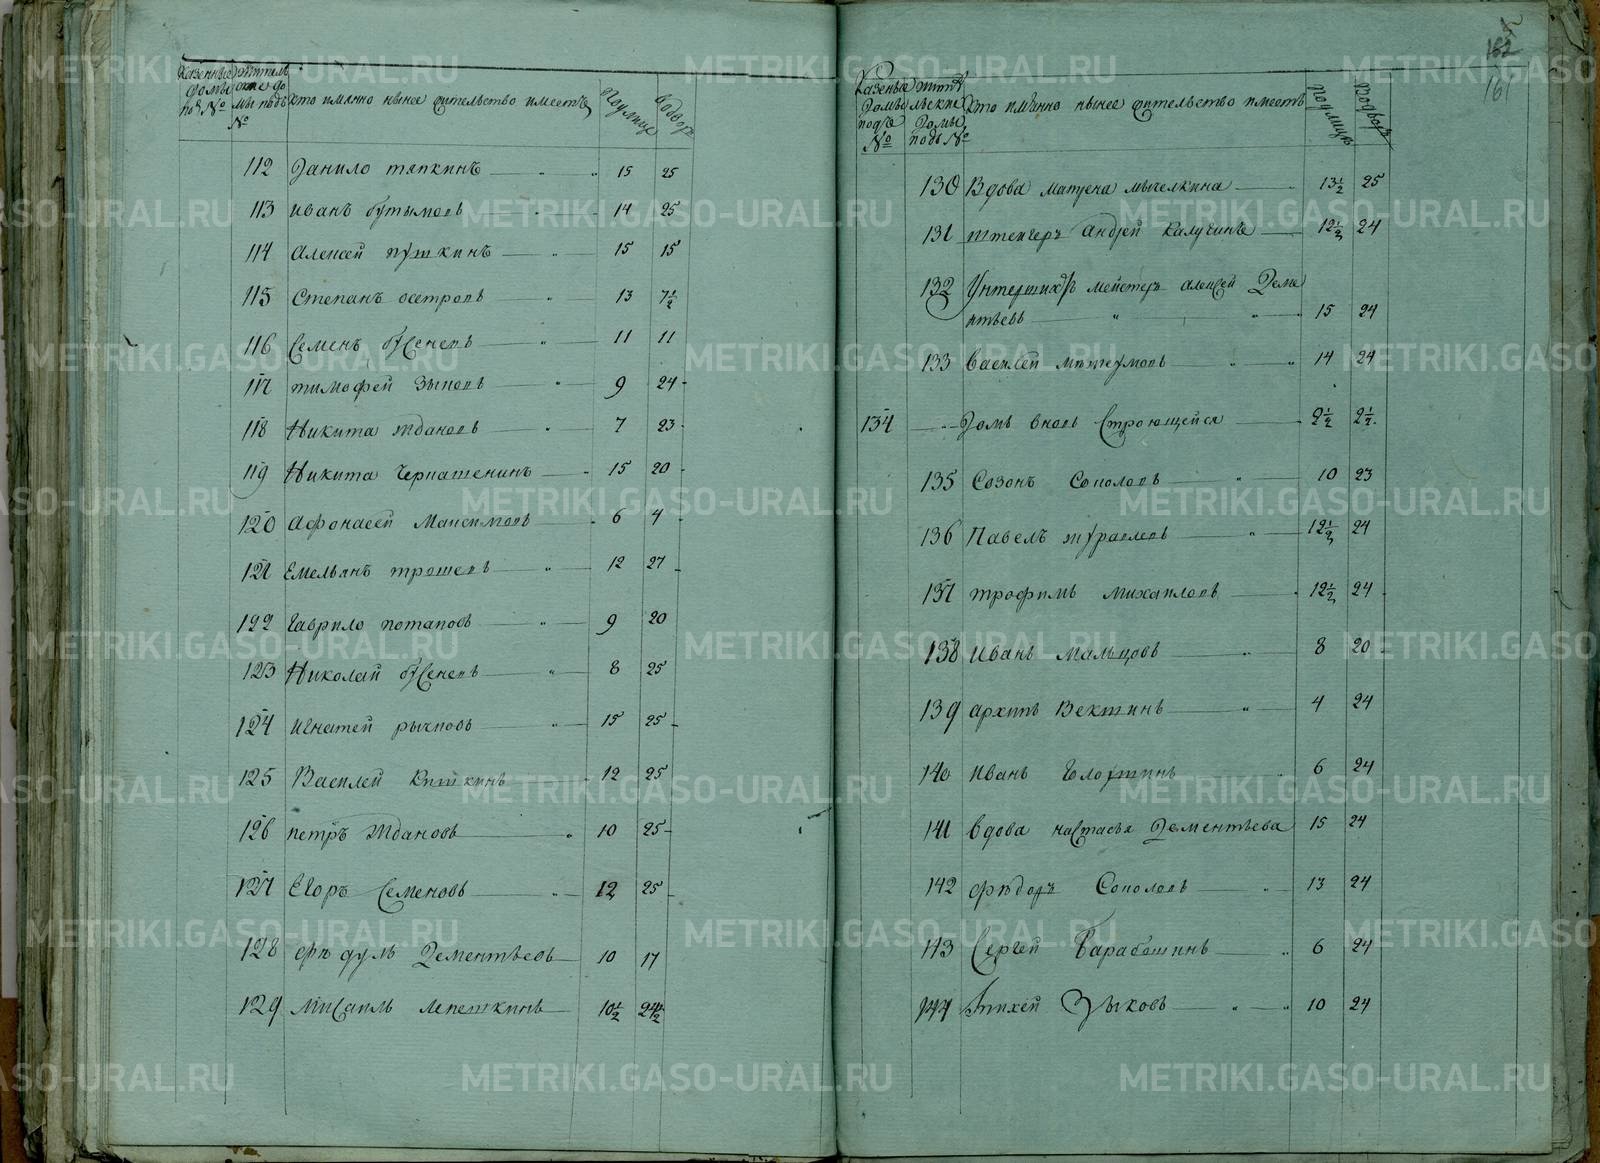 Казенные домы подъ №
жительские домы подъ №
кто имянно нынее жительство имеетъ
Поулице
Водворъ
112 Данило тяпкинъ 15 25
113 иванъ бутымовъ 14 25
114 Алексей пушкинъ 15 15
115 Степанъ осетровъ 13 7½
116 Семенъ буСеневъ 11 11
117 тимофей Зыковъ 9 24
118 Никита жбановъ 7 23
119 Никита 15 20
120 Афонасей Максимовъ 6 4
121 Емельянъ трошевъ 12 27
122 Гаврило потаповъ 9 20
123 Николай буСеневъ 8 25
124 игнатей рычковъ 15 25
125 Василей Кишкинъ 12 25
126 петръ Жбановъ 10 25
127 Егоръ Семеновъ 12 25
128 Дементьевъ 10 17
129 миСаилъ лепешкинъ 10½ 24½
162
161
Казеные домы подъ №
жительские домы подъ №
кто имянно нынее жительство имеетъ
Поулице
Водворъ
130 Вдова матрена мычелкина 13½ 25
131 штейгеръ Андрей Калугинъ 12½ 24
132 Унтершихтъ мейстеръ алексей Деме
нтьевъ 15 24
133 Василей 14 24
134 Домъ вновь Строющейся 2½ 2½
135 Созонъ Соколовъ 10 23
136 Павелъ журавлевъ 12½ 24
137 трофимъ михаиловъ 12½ 24
138 Иванъ Мальцовъ 8 20
139 архипъ Векшинъ 4 24
140 иванъ 6 24
141 Вдова наСтасья Дементьева 15 24
142 фѣдоръ Соколовъ 13 24
143 Сергей Барабошинъ 6 24
144 Тихей Зыковъ 10 24
METRIKI.GASO-URAL.RU